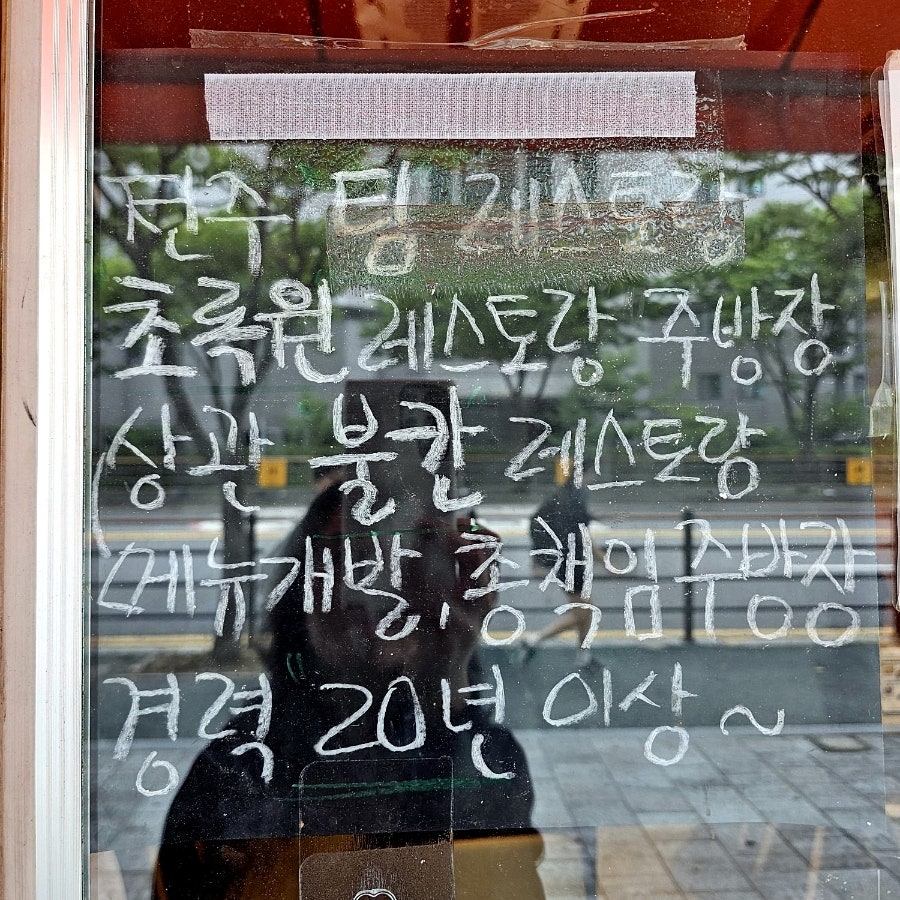 전주 팅 레스토랑
초록원 레스토랑 주방장
상관 불칸 레스토랑
메뉴개발, 총책임주방장
경력 20년 이상~